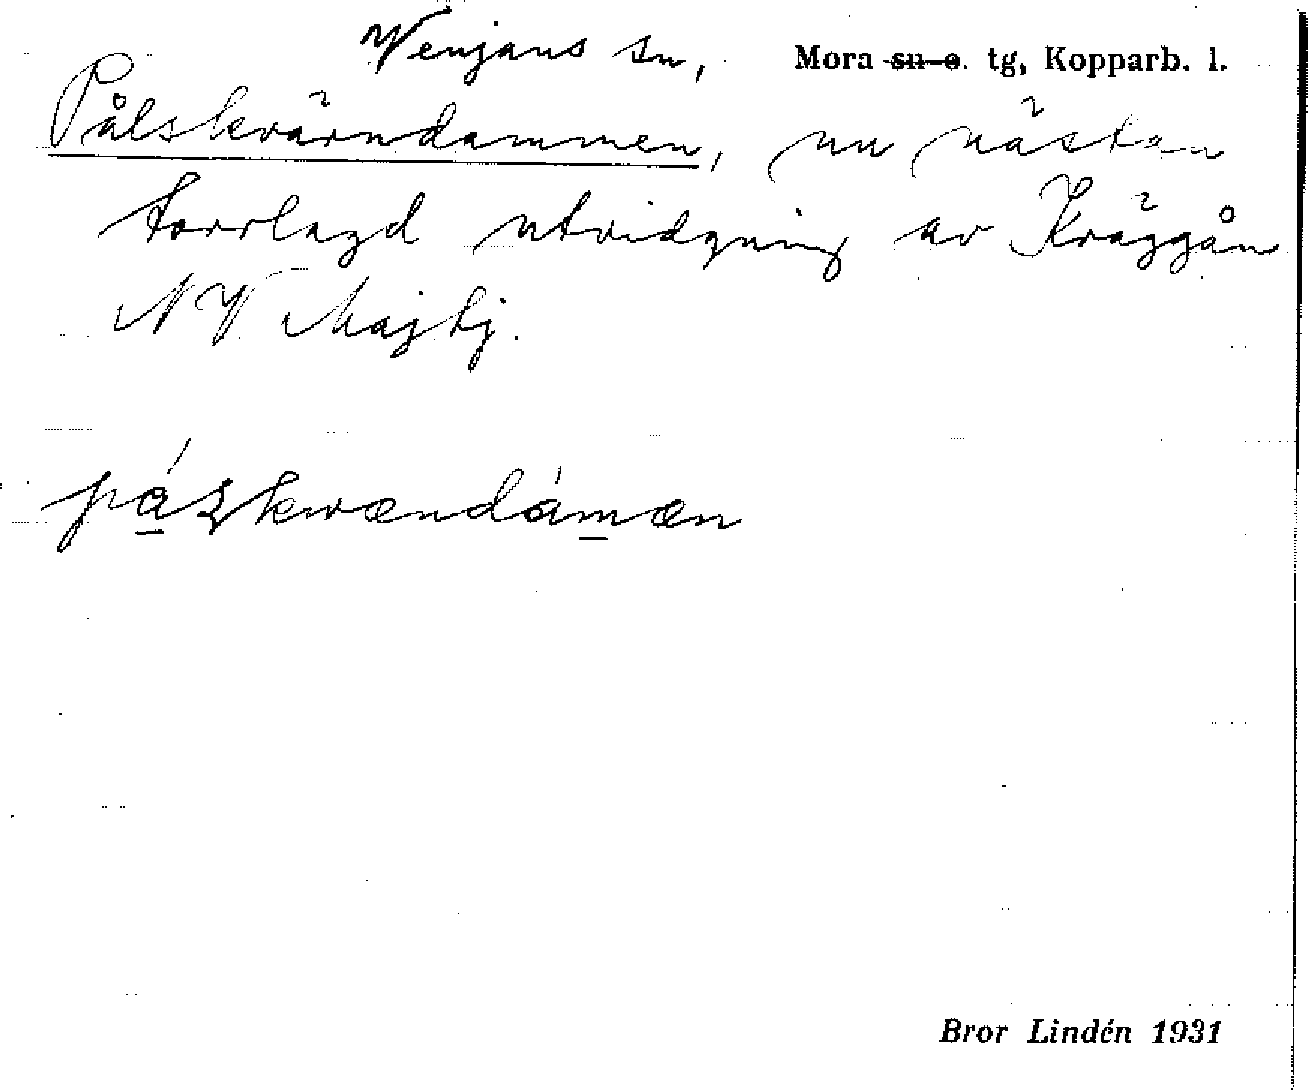 Venjans sn, Mora sn o. tg, Kopparb. l.
Pålskvärndammen, nu nästan
torrlagd utvidgning av Kräggån
NV Majbj.
páskwændámæn
Bror Lindén 1931